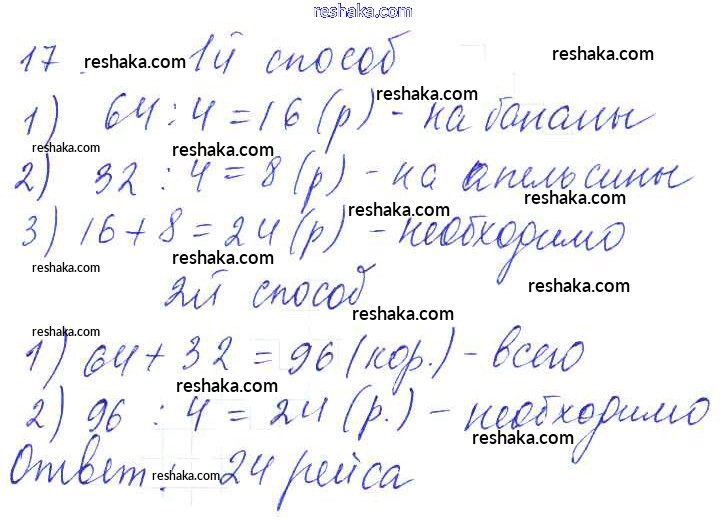 reshaka.com
17. reshaka.com 1й способ reshaka.com
1) 64 : 4 = 16 (р) - на бананы
reshaka.com reshaka.com reshaka.com
2) 32 : 4 = 8 (р) - на апельсины
reshaka.com reshaka.com
3) 16 + 8 = 24 (р) - необходимо
reshaka.com reshaka.com
2й способ reshaka.com
reshaka.com reshaka.com
1) 64 + 32 = 96 (кор.) - всего
reshaka.com reshaka.com
2) 96 : 4 = 24 (р.) - необходимо
reshaka.com
Ответ: 24 рейса
reshaka.com reshaka.com